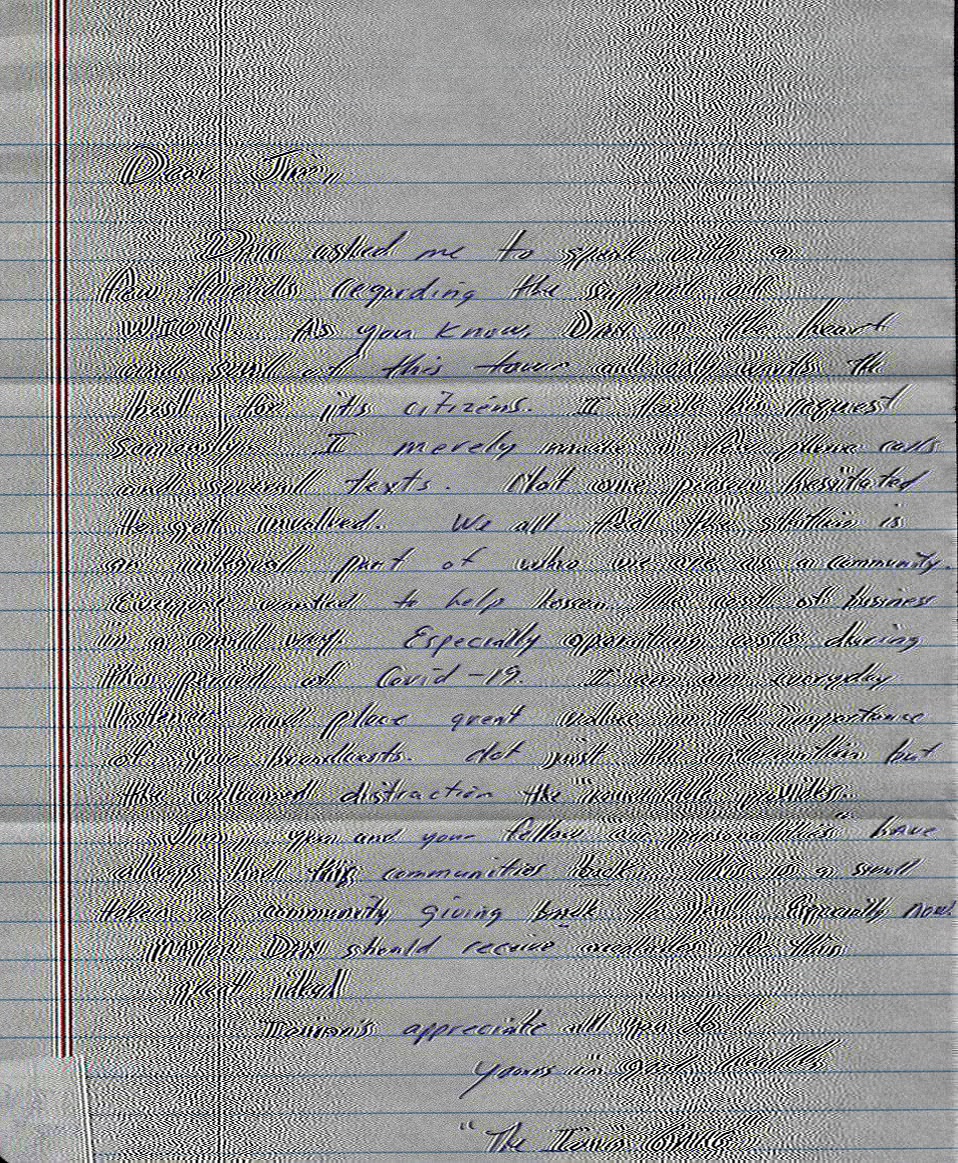 Dear Jim,
Dan asked me to speak with a
few friends regarding the support of
WTON. As you know, Dan is the heart
and soul of this town and only wants the
best for it's citizens. I took his request
seriously. I merely made a few phone calls
and several texts. Not one person hesitated
to get involved. We all feel the station is
an integral part of who we are as a community.
Everyone wanted to help lessen the cost of business
in a small way. Especially operating costs during
this period of Covid-19. I am an everyday
listener and place great value in the importance
of your broadcasts. Not just the information but
the welcomed distraction the provides.
Jim, you and your fellow "personalities" have
always had this communities back. This is a small
token of community giving back to you. Especially now!
Mayor Dan should receive accolades for this
great idea!
appreciate all you do!
Yours in good health
"The